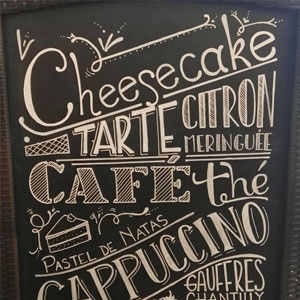 Cheesecake
TARTE CITRON
MERINGUÉE
CAFÉ thé
PASTEL DE NATAS
CAPPUCCINO
GAUFRES
CHANTILLY